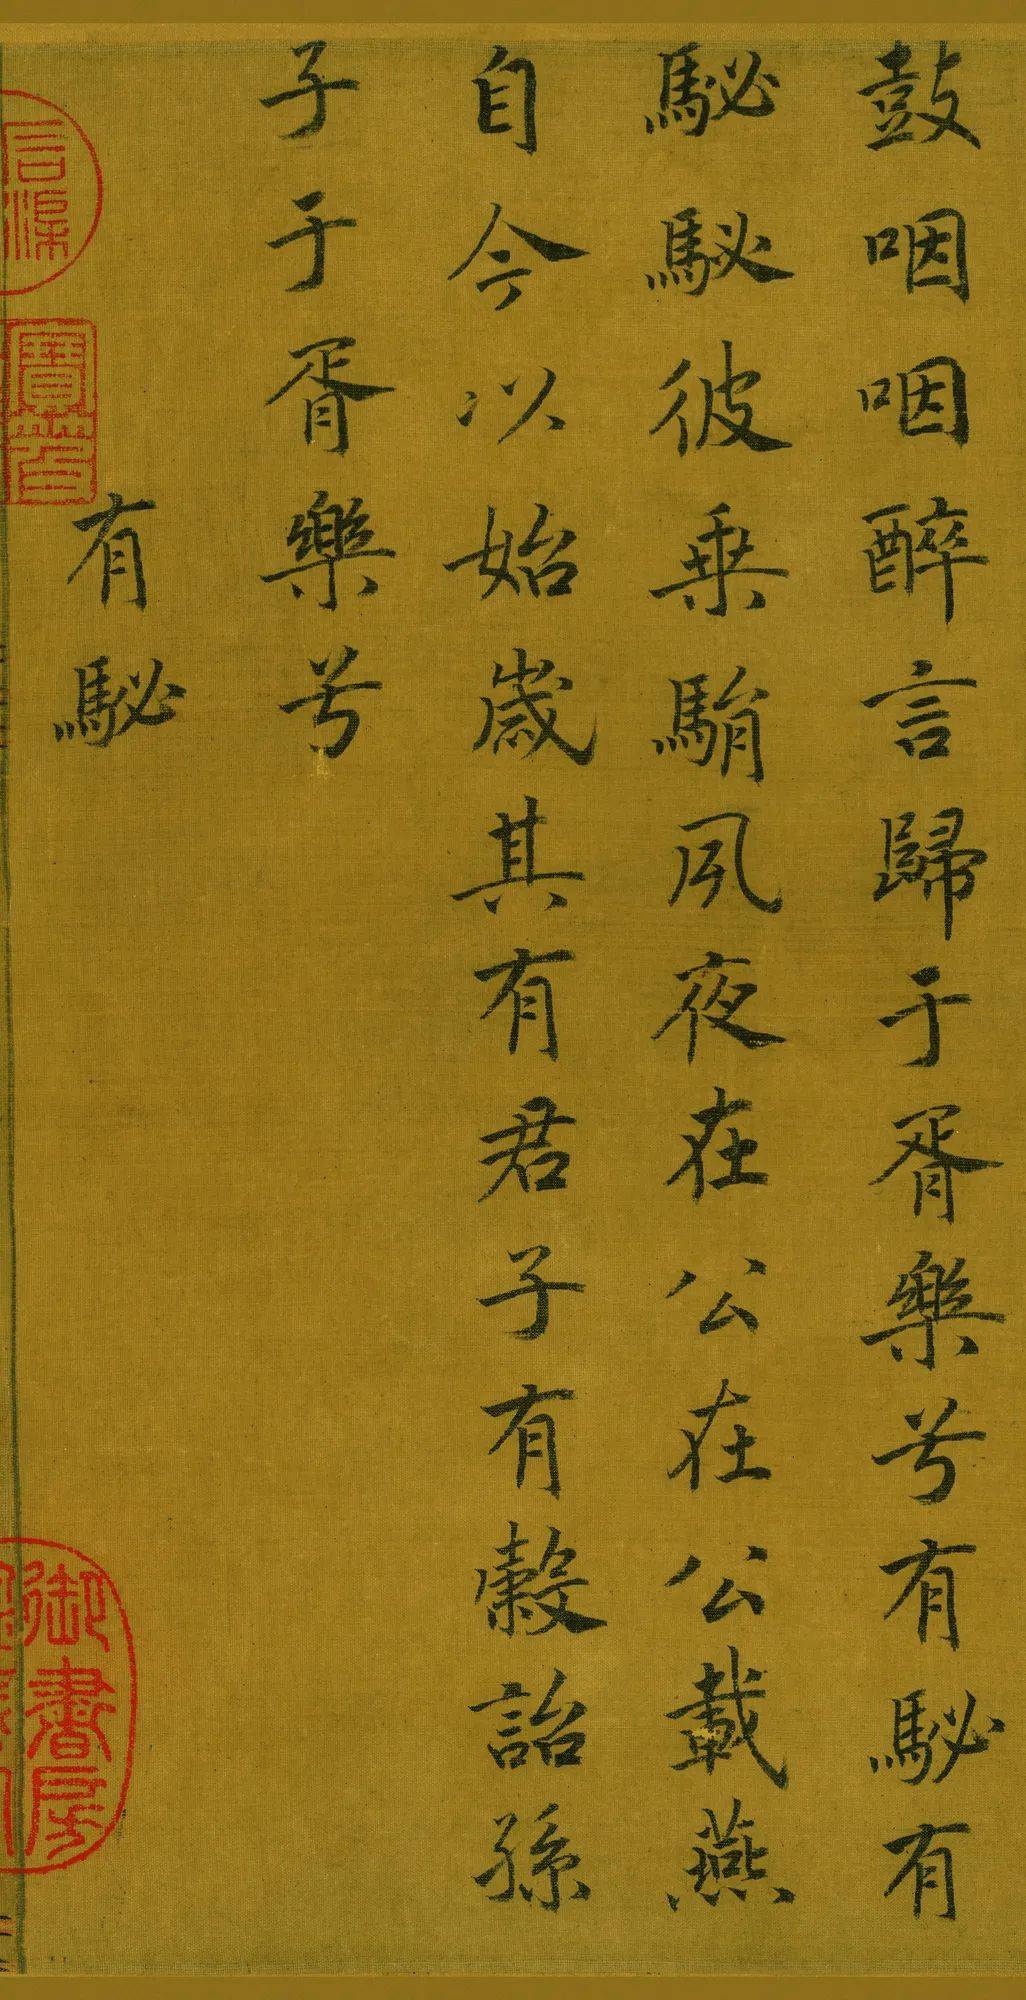 鼓咽咽醉言歸于胥樂兮有駜有
駜駜彼乗駽夙夜在公在公載燕
自今以始歲其有君子有穀詒孫
子于胥樂兮
有駜
石渠
寶笈
御書房